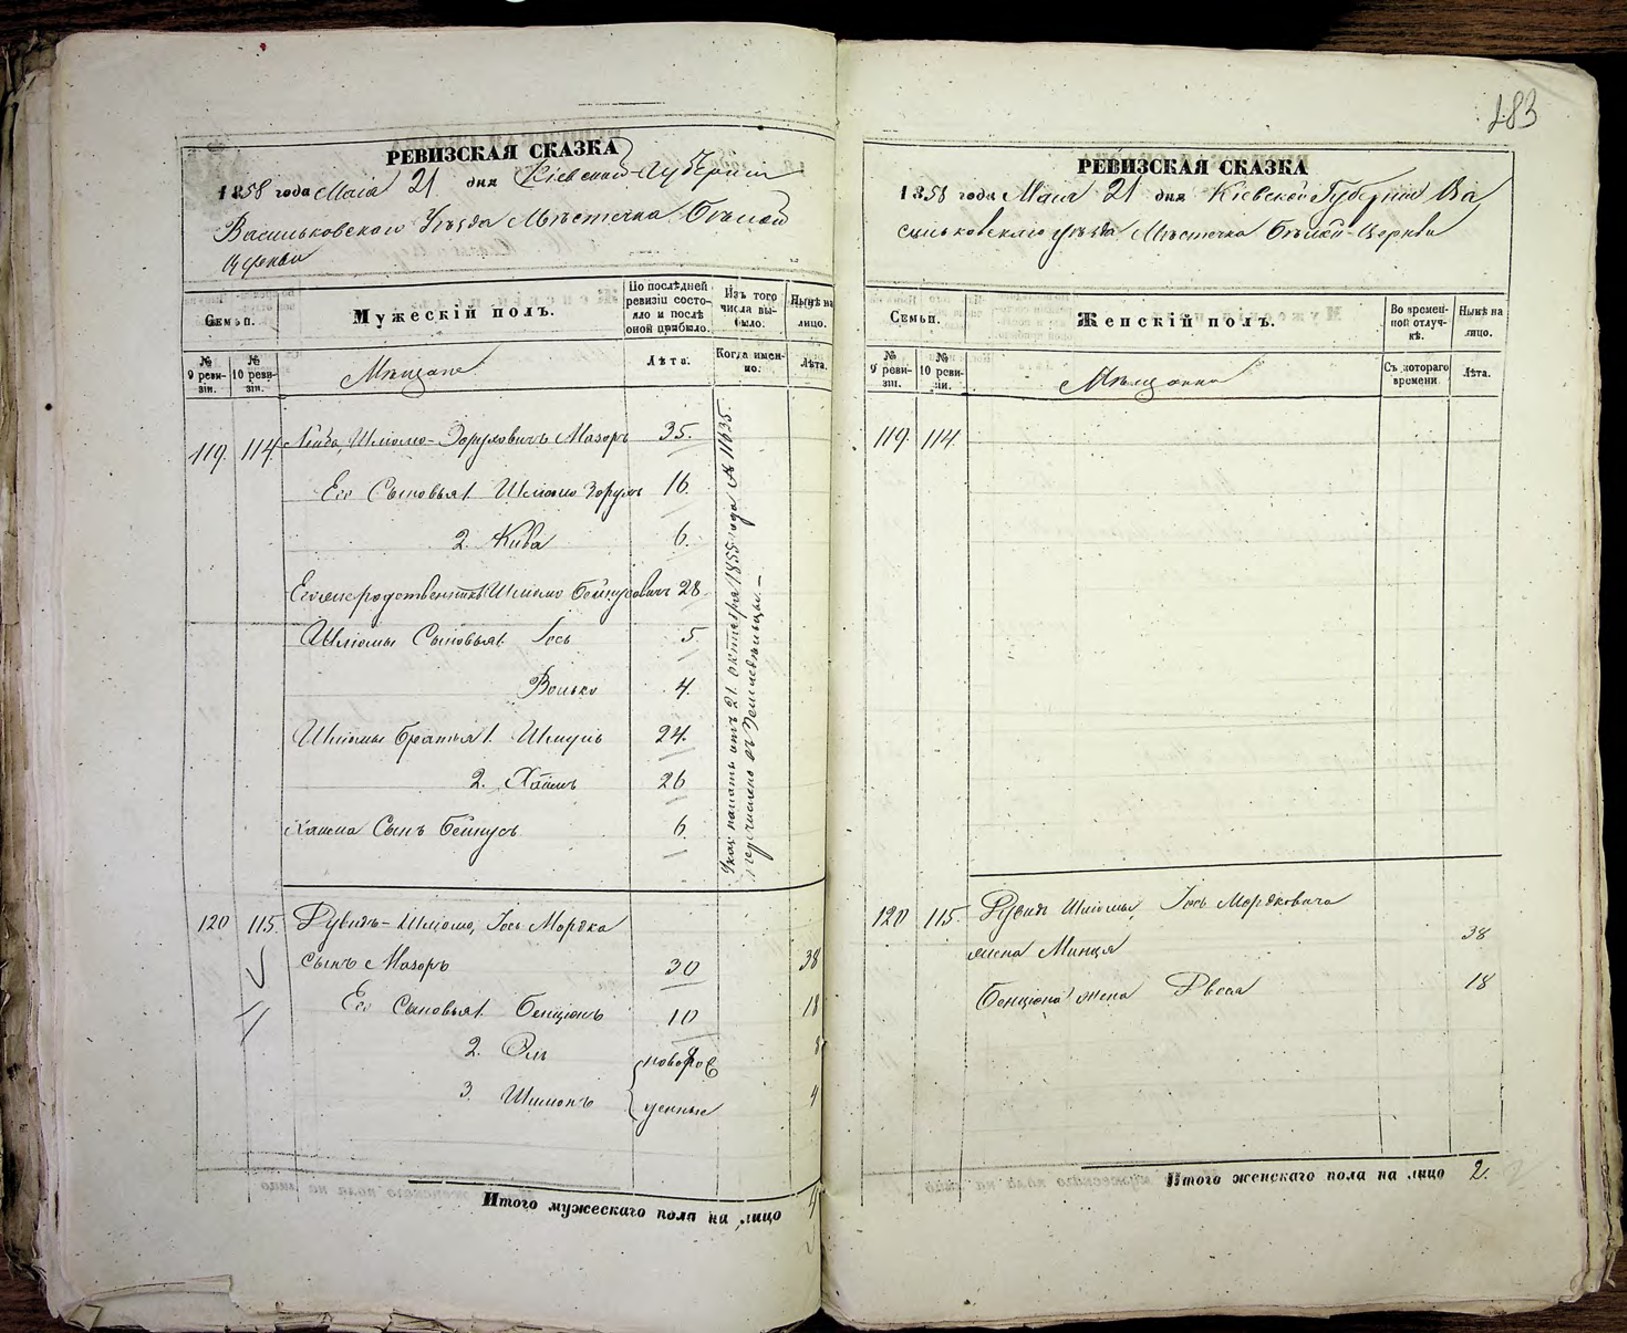 183
РЕВИЗСКАЯ СКАЗКА
1858 года Маія 21 дня Кіевской Губерніи
Васильковскаго Уѣзда Мѣстечка Бѣлой
Церкви
Семьи.
Мужескій полъ.
По послѣдней ревизіи состояло и послѣ оной прибыло.
Изъ того числа выбыло.
Нынѣ на лицо.
№ 9 ревизіи.
№ 10 ревизіи.
Мѣщане
Лѣта.
Когда именно.
Лѣта.
119. 114 Шліомо- Мазоръ 35.
Его Сыновья 1. Шліомо 16.
2. Кива 6.
Шліомо Бейнусовичъ 28
Шліомы Сыновья 1. Іось 5
Волько 4.
Шліомы братья 1. Шмуль 24.
2. Хаимъ 26
Хаима Сынъ Бейнусъ 6.
Указъ палаты отъ 21. октября 1855 года № 11635.
перечислено въ Земледѣльцы.—
120 115. Рувинъ-Шліомо, Іось Мордка
сынъ Мазоръ 30 38
Его Сыновья 1. Бенціонъ 10 18
2. новорож 8
3. Шимонъ денные 4
Итого мужескаго пола на лицо 4
РЕВИЗСКАЯ СКАЗКА
1858 года Маія 21 дня Кіевской Губерніи Ва
сильковскаго уѣзда Мѣстечка Бѣлой-Церкви
Семьи.
Женскій полъ.
Во временной отлучкѣ.
Нынѣ на лицо.
№ 9 ревизіи.
№ 10 ревизіи.
Мѣщанки
Съ котораго времени
Лѣта.
119. 114.
120 115. Рувинъ Шліомы, Іось Мордковича
жена Минця 38
Бенціона жена Рвеса 18
Итого женскаго пола на лицо 2.